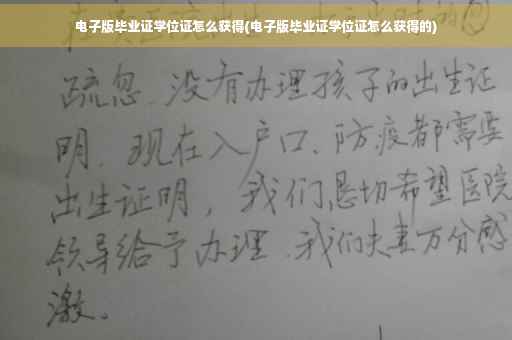 电子版毕业证学位证怎么获得(电子版毕业证学位证怎么获得的)
疏忽、没有办理孩子的出生证
明、现在入户口、防疫都需要
出生证明，我们恳切希望医院
领导给予办理、我们夫妻万分感
激。